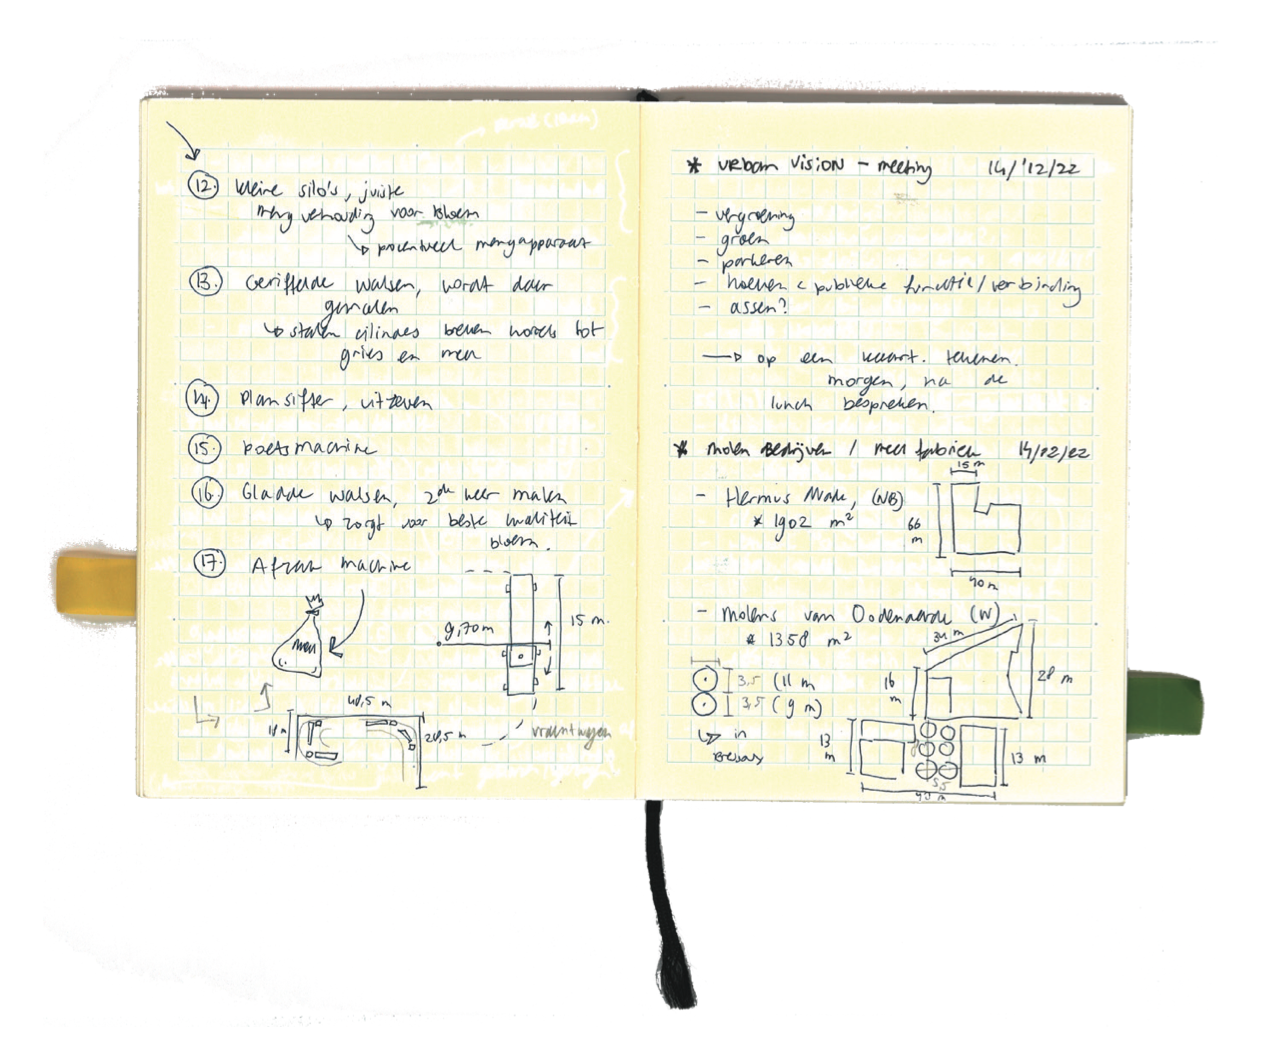 12. kleine silo's, juiste
meng verhouding voor bloem
↳ procentueel mengapparaat
13. Geriffelde walsen, wordt daar
gemalen
↳ stalen cilindes breken korrels tot
gries en meel
14. Plansifter, uitzeven
15. Poetsmachine
16. Gladde walsen, 2de keer malen
↳ zorgt voor beste kwaliteit
bloem.
17. Afzak machine
meel
9,70m
15 m.
40,5 m
18 m
20,5 m
vrachtwagen
* URBAN VISION - meeting 14/'12/22
- vergroening
- groen
- parkeren
- hoeken < publieke functie/verbinding
- assen?
→ op een kaart. tekenen.
morgen, na de
lunch bespreken.
* Molen Bedrijven / meel fabriek 14/12/22
15 m
- Hermus Made, (NB)
* 1902 m²
66
m
40 m
- Molens van Oudenaarde (W)
* 1358 m²
34 m
28 m
16
m
3,5 (11 m
3,5 (9 m)
↳ in
13
m
13 m
5,5
40 m